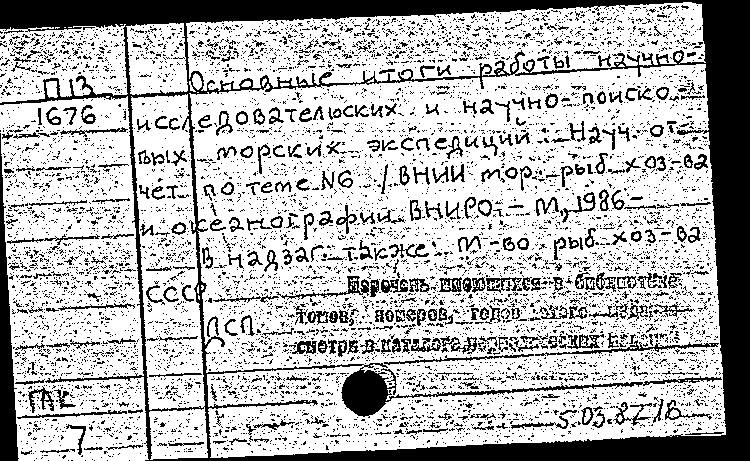 П13
1676
Основные итоги работы научно-
исследовательских и научно-поиско-
вых морских экспедиций: Науч. от-
чёт по теме N6 / ВНИИ мор. рыб. хоз-ва
и океанографии. ВНИРО. – М, 1986 –
В надзаг. также: М-во рыб. хоз-ва
СССР.
ДСП.
Перечень имеющихся в библиотеке
томов, номеров, годов этого издания
смотри в каталоге периодических изданий
ГАК
7